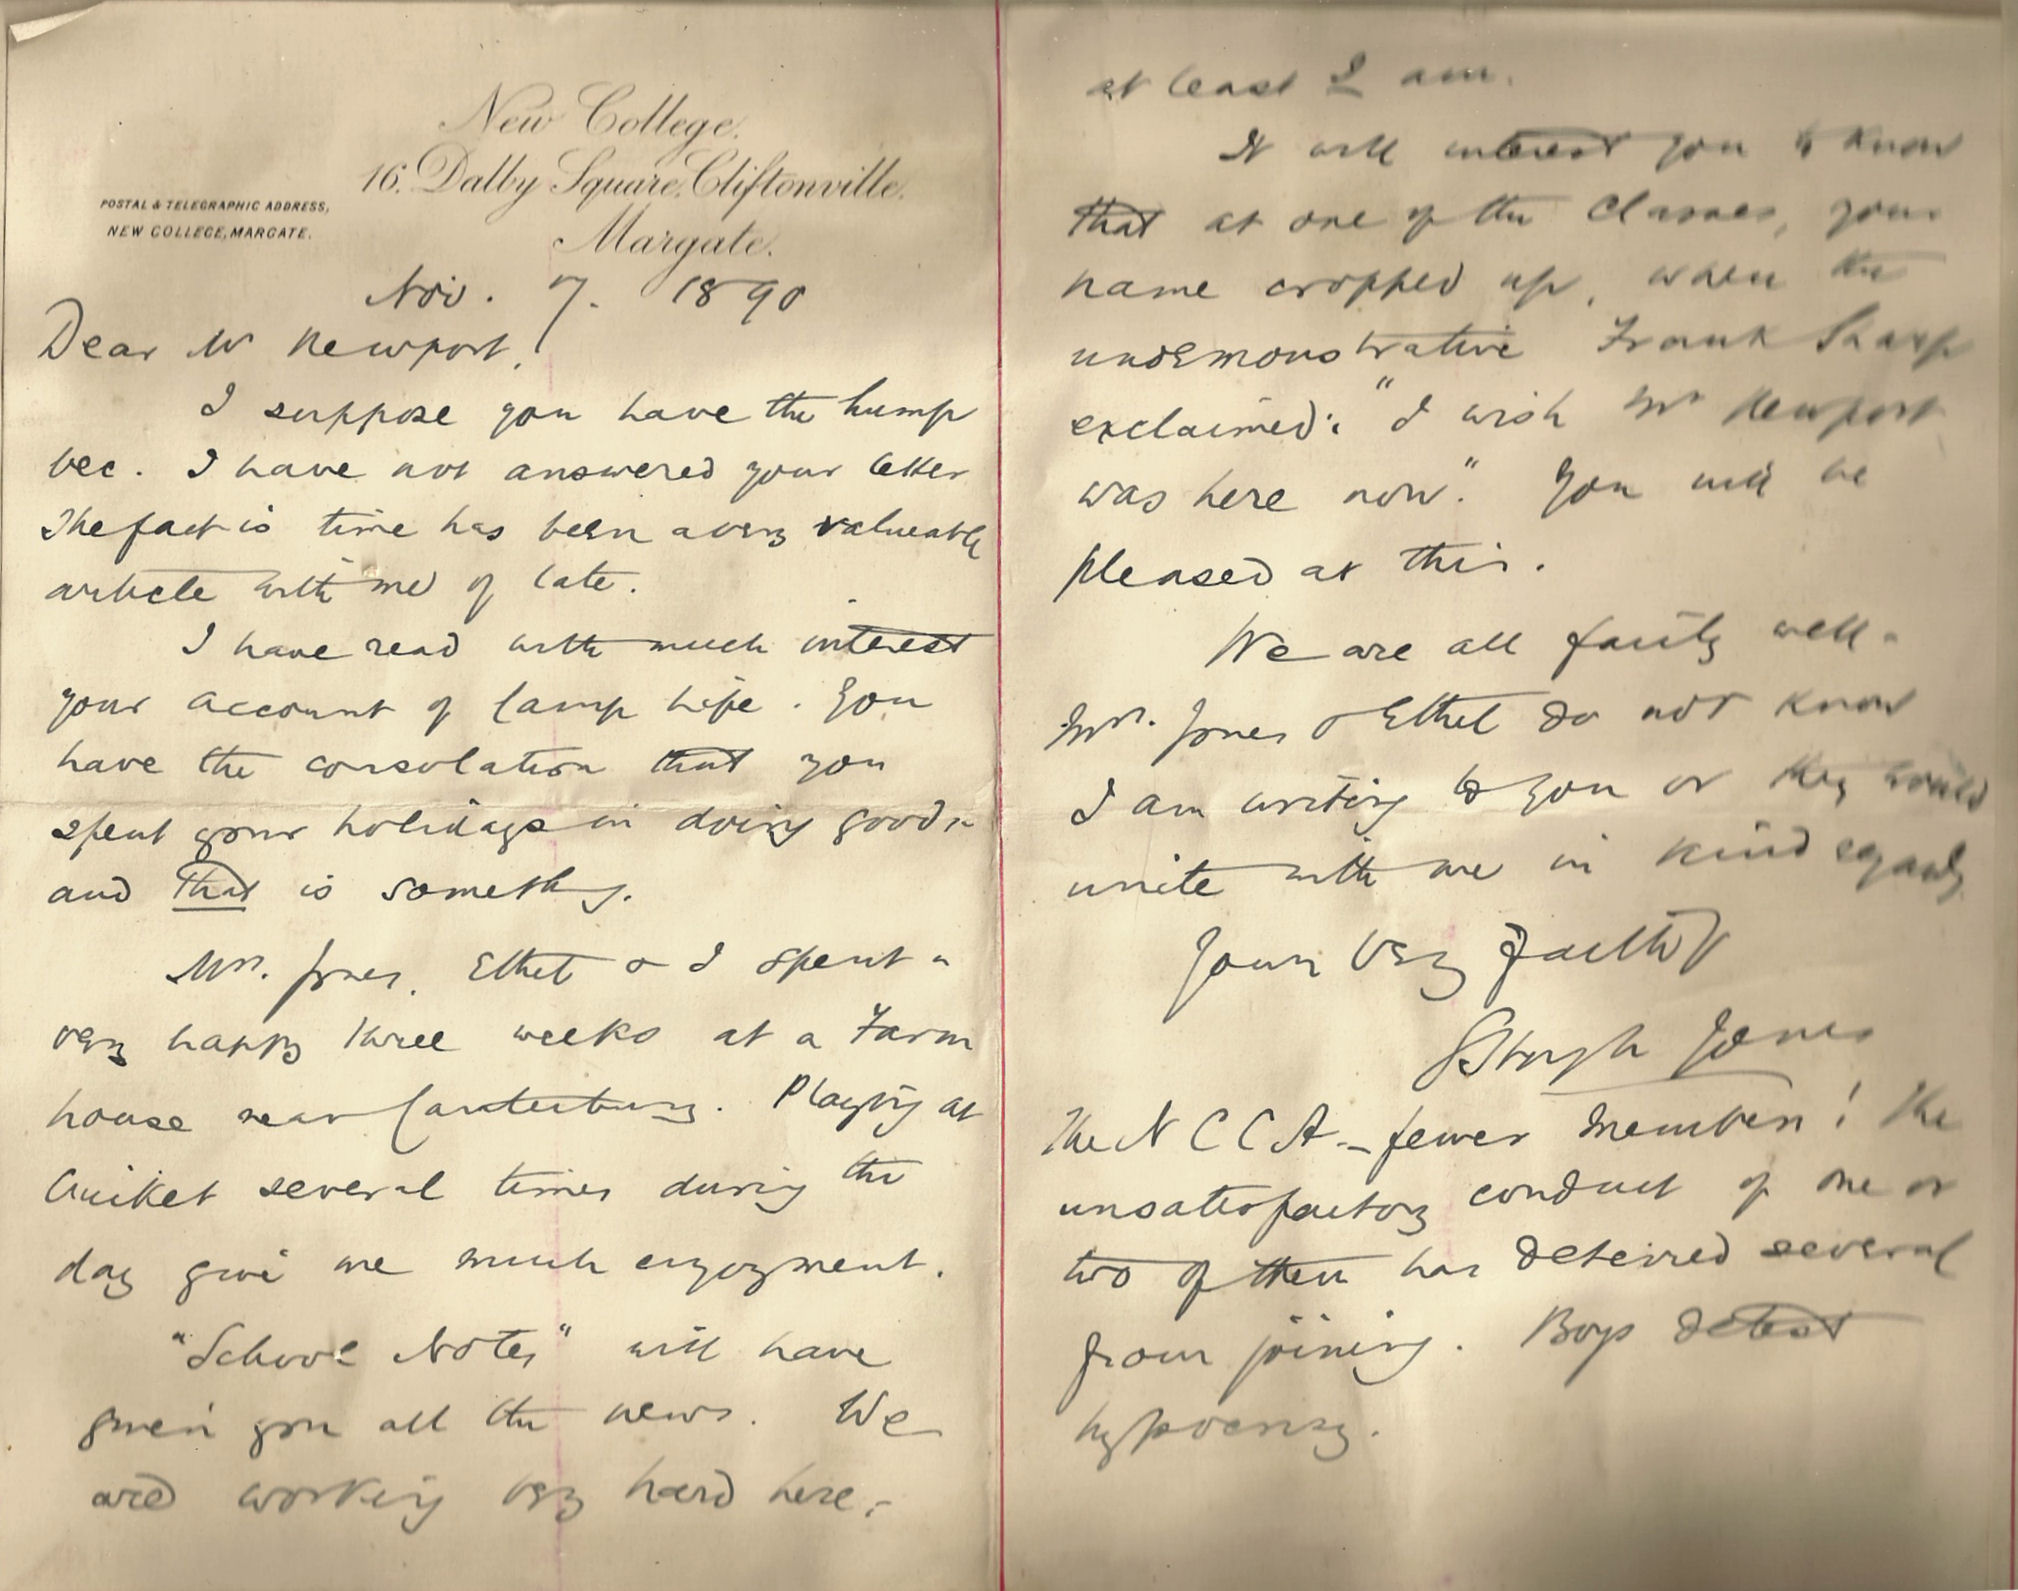 New College.
16. Dalby Square, Cliftonville.
Margate.
POSTAL & TELEGRAPHIC ADDRESS,
NEW COLLEGE, MARGATE.
Nov. 7. 1890
Dear Mr Newport,
I suppose you have the hump
bec. I have not answered your letter
The fact is time has been a very valuable
article with me of late.
I have read with much interest
your account of Camp life. You
have the consolation that you
spent your holidays in doing good,-
and that is something.
Mrs. Jones, Ethel & I spent a
very happy three weeks at a Farm
house near Canterbury. Playing at
Cricket several times during the
day give me much enjoyment.
"School Notes" will have
given you all the news. We
are working very hard here,-
at least I am.
It will interest you to know
that at one of the Classes, your
name cropped up, when the
undemonstrative Frank Sharp
exclaimed: "I wish Mr Newport
was here now." You will be
pleased at this.
We are all fairly well.
Mrs. Jones & Ethel do not know
I am writing to you or they would
unite with me in kind regards
Yours very faithf
Jones
The N C C A - fewer members! The
unsatisfactory conduct of one or
two of them has deterred several
from joining. Boys detest
hypocrisy.